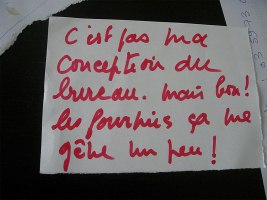 C'est pas ma
conception du
bureau. mais bon!
les fourmis ça me
gêne un peu!